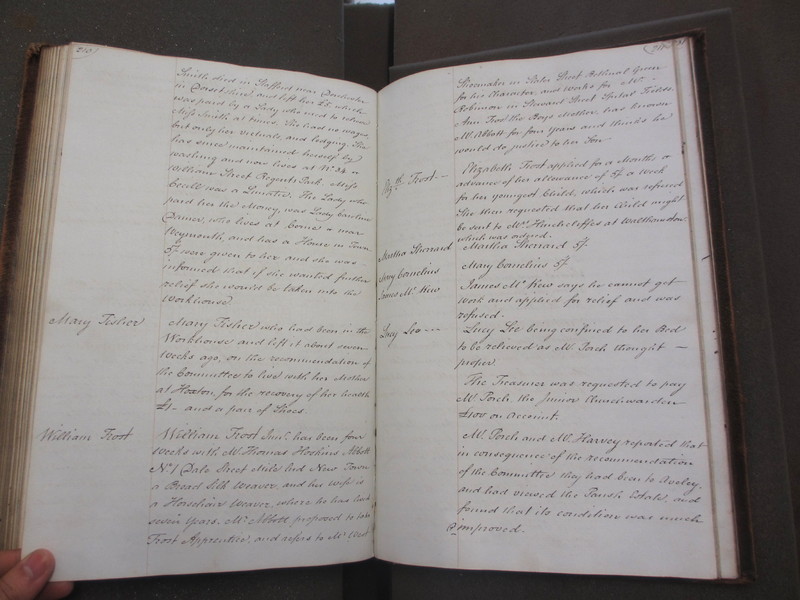 210
Smith died in Stafford near Dorchester
in Dorsetshire and left her £5 which
was paid by a Lady who used to relieve
Miss Smith at times. She had no wages,
but only her victuals, and lodging. She
has since maintained herself by
washing and now lives at No. 24
William Street Regents Park. Miss
was a Lunatic. The Lady who
paid her the Money, was Lady Caroline
Damer, who lives at Came near
Weymouth, and has a House in Town
5/- were given to her and she was
informed that if she wanted further
relief she would be taken into the
Workhouse.
Mary Fisher
Mary Fisher who had been in the
Workhouse and left it about seven
Weeks ago, on the recommendation of
the Committee to live with her Mother
at Hoxton, for the recovery of her health
£1 - and a pair of Shoes.
William Frost
William Frost Junr. has been four
Weeks with Mr. Thomas Hoskins Abbott
No. 1 Dale Street Mile End New Town
a Broad Silk Weaver, and his wife is
a Horsehair Weaver, where he has lived
seven Years. Mr. Abbott, proposed to take
Frost Apprentice, and refers to Mr. West
Shoemaker in Slater Street Bethnal Green
for his Character, and works for Mr.
Robinson in Steward Street Spital Fields.
Ann Frost the Boys Mother, has known
Mr. Abbott for four Years and thinks he
would do justice to her Son.
Elizth. Frost
Elizabeth Frost applied for a Months
advance of her allowance of 5/- a week
for her youngest Child, which was refused
She then requested that her Child might
be sent to Mr. Hinchcliffes at Walthamstow
which was ordered.
Martha Sherrard
Martha Sherrard 5/-
Mary Cornelius
Mary Cornelius 5/-
James Mc. Kew
James Mc. Kew says he cannot get
work and applied for relief and was
refused.
Lucy Lee
Lucy Lee being confined to her Bed
to be relieved as Mr. Porch thought
proper.
The Treasurer was requested to pay
Mr. Porch the Junior Churchwarden
£100 on Account.
Mr. Porch and Mr. Harvey reported that
in consequence of the recommendation
of the Committee they had been to Aveley,
and had viewed the Parish Estate, and
found that its condition was much
improved.